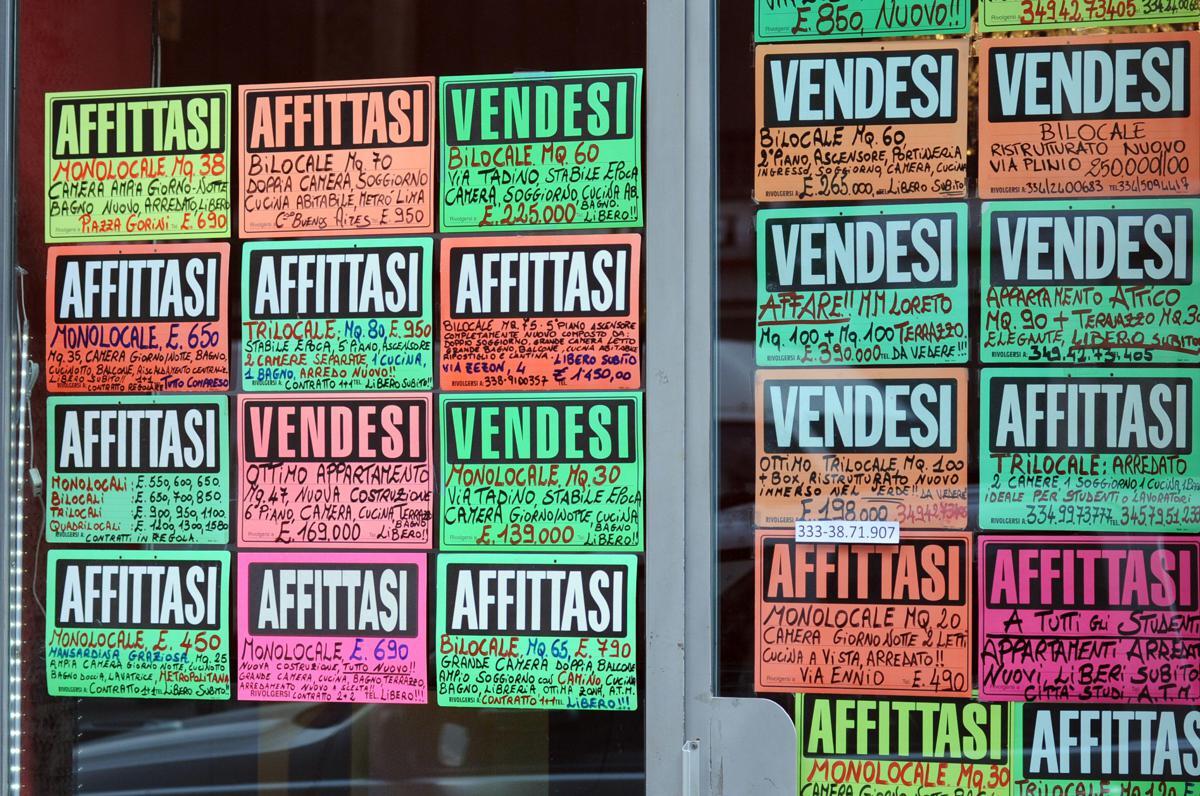 AFFITTASI
MONOLOCALE, MQ. 38
CAMERA AMPIA GIORNO-NOTTE
BAGNO NUOVO, ARREDATO, LIBERO
PIAZZA GORINI E. 690
AFFITTASI
BILOCALE MQ. 70
DOPPIA CAMERA, SOGGIORNO
CUCINA ABITABILE, METRÒ LIMA
C.SO BUENOS AIRES E. 950
VENDESI
BILOCALE, MQ. 60
VIA TADINO, STABILE EPOCA
CAMERA, SOGGIORNO, CUCINA AB.
BAGNO.
E. 225.000 LIBERO!!
AFFITTASI
MONOLOCALE, E. 650
MQ. 35, CAMERA GIORNO/NOTTE, BAGNO,
CUCINOTTO, BALCONE, RISCALDAMENTO CENTRALE,
LIBERO SUBITO!! 1+1 TUTTO COMPRESO
CONTRATTO REGOLARE
AFFITTASI
TRILOCALE, MQ. 80 E. 950
STABILE EPOCA, 5° PIANO, ASCENSORE
2 CAMERE SEPARATE, 1 CUCINA,
1 BAGNO, ARREDO NUOVO!!
CONTRATTO 1+1 LIBERO SUBITO!!
AFFITTASI
BILOCALE, MQ. 75 - 5° PIANO ASCENSORE
COMPLETAMENTE NUOVO COMPOSTO DA:
DOPPIO SOGGIORNO, GRANDE CAMERA LETTO
GRANDE BAGNO, BALCONE, CUCINA ABITABILE
RIPOSTIGLIO E CANTINA. LIBERO SUBITO
VIA ZEZON, 4 E 1150,00
RIVOLGERSI A: 338-9100357 TEL.
AFFITTASI
MONOLOCALI: E. 550, 600, 650
BILOCALI : E. 650, 700, 850.
TRILOCALI : E. 900, 950, 1100
QUADRILOCALI : E. 1200, 1300, 1580
CONTRATTI IN REGOLA.
VENDESI
OTTIMO APPARTAMENTO
MQ. 47, NUOVA COSTRUZIONE
6° PIANO, CAMERA, CUCINA TERRAZZO
BAGNO
E. 169.000 LIBERO!!
VENDESI
MONOLOCALE, MQ. 30
VIA TADINO, STABILE EPOCA
CAMERA GIORNO/NOTTE CUCINA
BAGNO
E. 139.000 LIBERO!!
AFFITTASI
MONOLOCALE, E. 450
MANSARDINA GRAZIOSA, MQ. 25
AMPIA CAMERA GIORNO NOTTE, CUCINOTTO
BAGNO DOCCIA, LAVATRICE, METROPOLITANA
RIVOLGERSI A: CONTRATTO 1+1 LIBERO SUBITO!
AFFITTASI
MONOLOCALE, E. 690
NUOVA COSTRUZIONE, TUTTO NUOVO!!
GRANDE CAMERA, CUCINA, BAGNO, TERRAZZO,
ARREDAMENTO NUOVO A SCELTA!!
RIVOLGERSI CONTRATTO 2+2 TEL LIBERO!!
AFFITTASI
BILOCALE, MQ 65, E. 790
GRANDE CAMERA DOPPIA, BALCONE
AMPIO SOGGIORNO CON CAMINO, CUCINA
BAGNO, LIBRERIA, OTTIMA ZONA, A.T.M.
RIVOLGERSI A: CONTRATTO 1+1 LIBERO!!!
E. 850, NUOVO!!
3494273405
VENDESI
BILOCALE MQ. 60
2° PIANO, ASCENSORE, PORTINERIA
INGRESSO, SOGGIORNO, CAMERA, CUCINA
E. 265.000, LIBERO SUBITO
VENDESI
BILOCALE
RISTRUTTURATO NUOVO
VIA PLINIO 250.000,00
RIVOLGERSI A: 3342400683 TEL
VENDESI
AFFARE!! MM LORETO
MQ. 100 + MQ. 100 TERRAZZO.
E. 390.000 DA VEDERE!!
VENDESI
APPARTAMENTO ATTICO
MQ. 90 + TERRAZZO MQ. 30
ELEGANTE, LIBERO SUBITO
349.42.73.405
VENDESI
OTTIMO TRILOCALE, MQ. 100
+ BOX, RISTRUTTURATO NUOVO
IMMERSO NEL VERDE!! DA VEDERE
E. 198.000
333-38.71.907
AFFITTASI
TRILOCALE: ARREDATO
2 CAMERE 1 SOGGIORNO 1 CUCINA, 1
IDEALE PER STUDENTI O LAVORATORI
RIVOLGERSI A: 334.9973777 TEL
AFFITTASI
MONOLOCALE MQ 20
CAMERA GIORNO NOTTE 2 LETTI
CUCINA A VISTA, ARREDATO!!
VIA ENNIO E. 490
AFFITTASI
A TUTTI GLI STUDENTI
APPARTAMENTI ARREDATI
NUOVI, LIBERI SUBITO
CITTÀ STUDI, A.T.M.
AFFITTASI
MONOLOCALE MQ. 30
CAMERA GIORNO NOTTE BAGNO
AFFITTAS